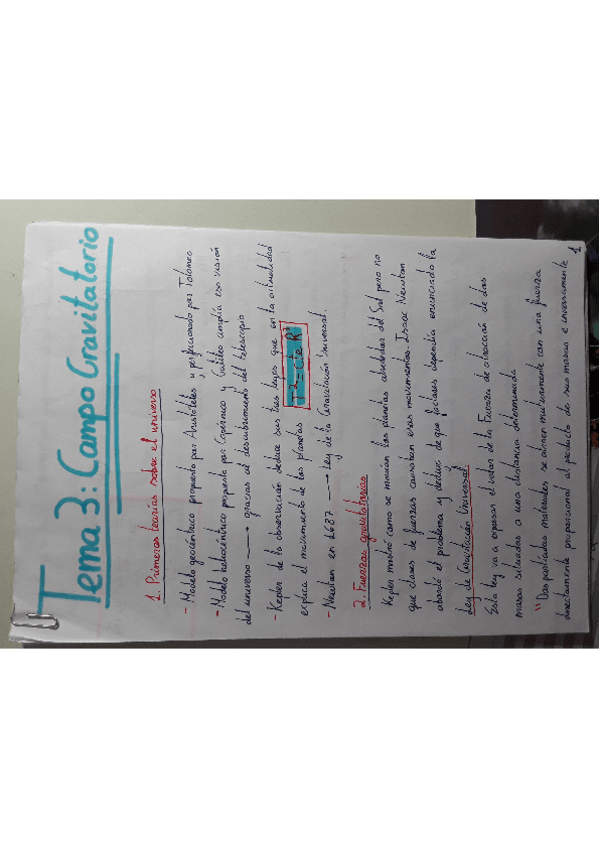 Tema 3: Campo Gravitatorio
1. Primeras teorías sobre el universo
- Modelo geocéntrico propuesto por Aristóteles, perfeccionado por Tolomeo
- Modelo heliocéntrico propuesto por Copérnico y Galileo amplía esa visión
del universo → gracias al descubrimiento del telescopio
- Kepler de la observación deduce sus tres leyes que en la actualidad
explica el movimiento de los planetas T² = cte R³
- Newton en 1687 → Ley de la Gravitación Universal.
2. Fuerzas gravitatorias
Kepler mostró como se movían los planetas alrededor del Sol pero no
que clases de fuerzas causaban esos movimientos. Isaac Newton
abordó el problema y dedujo de que factores dependía enunciando la
Ley de Gravitación Universal
Esta ley va a expresar el valor de la fuerza de atracción de dos
masas situadas a una distancia determinada
"Dos partículas materiales se atraen mutuamente con una fuerza
directamente proporcional al producto de sus masas e inversamente
1